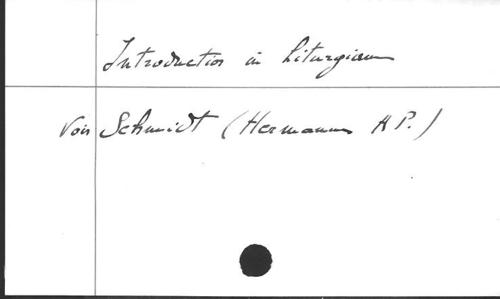 Introductio in Liturgiam
Voir Schmidt (Hermannus A P.)